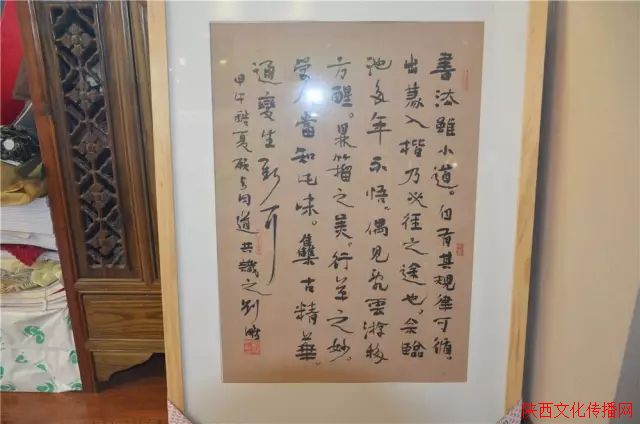 書法雖小道。自有其規律可循。
出篆入楷乃必徑之途也。余臨
池多年不悟。偶見飛雲游移
方醒。果籀之美。行草之妙。
學人當知此味。集古精華。
通變生新可
甲午酷夏 願與同道共識之 劉
陕西文化传播网